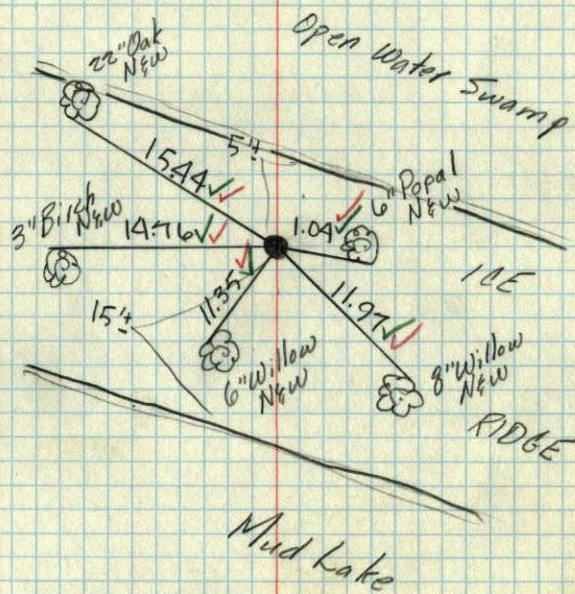 Open Water Swamp
22" Oak
New
5'±
15.44
6" Popal
New
3" Birch
New
14.76
1.04
ICE
15'±
11.35
11.97
6" Willow
New
8" Willow
New
RIDGE
Mud Lake